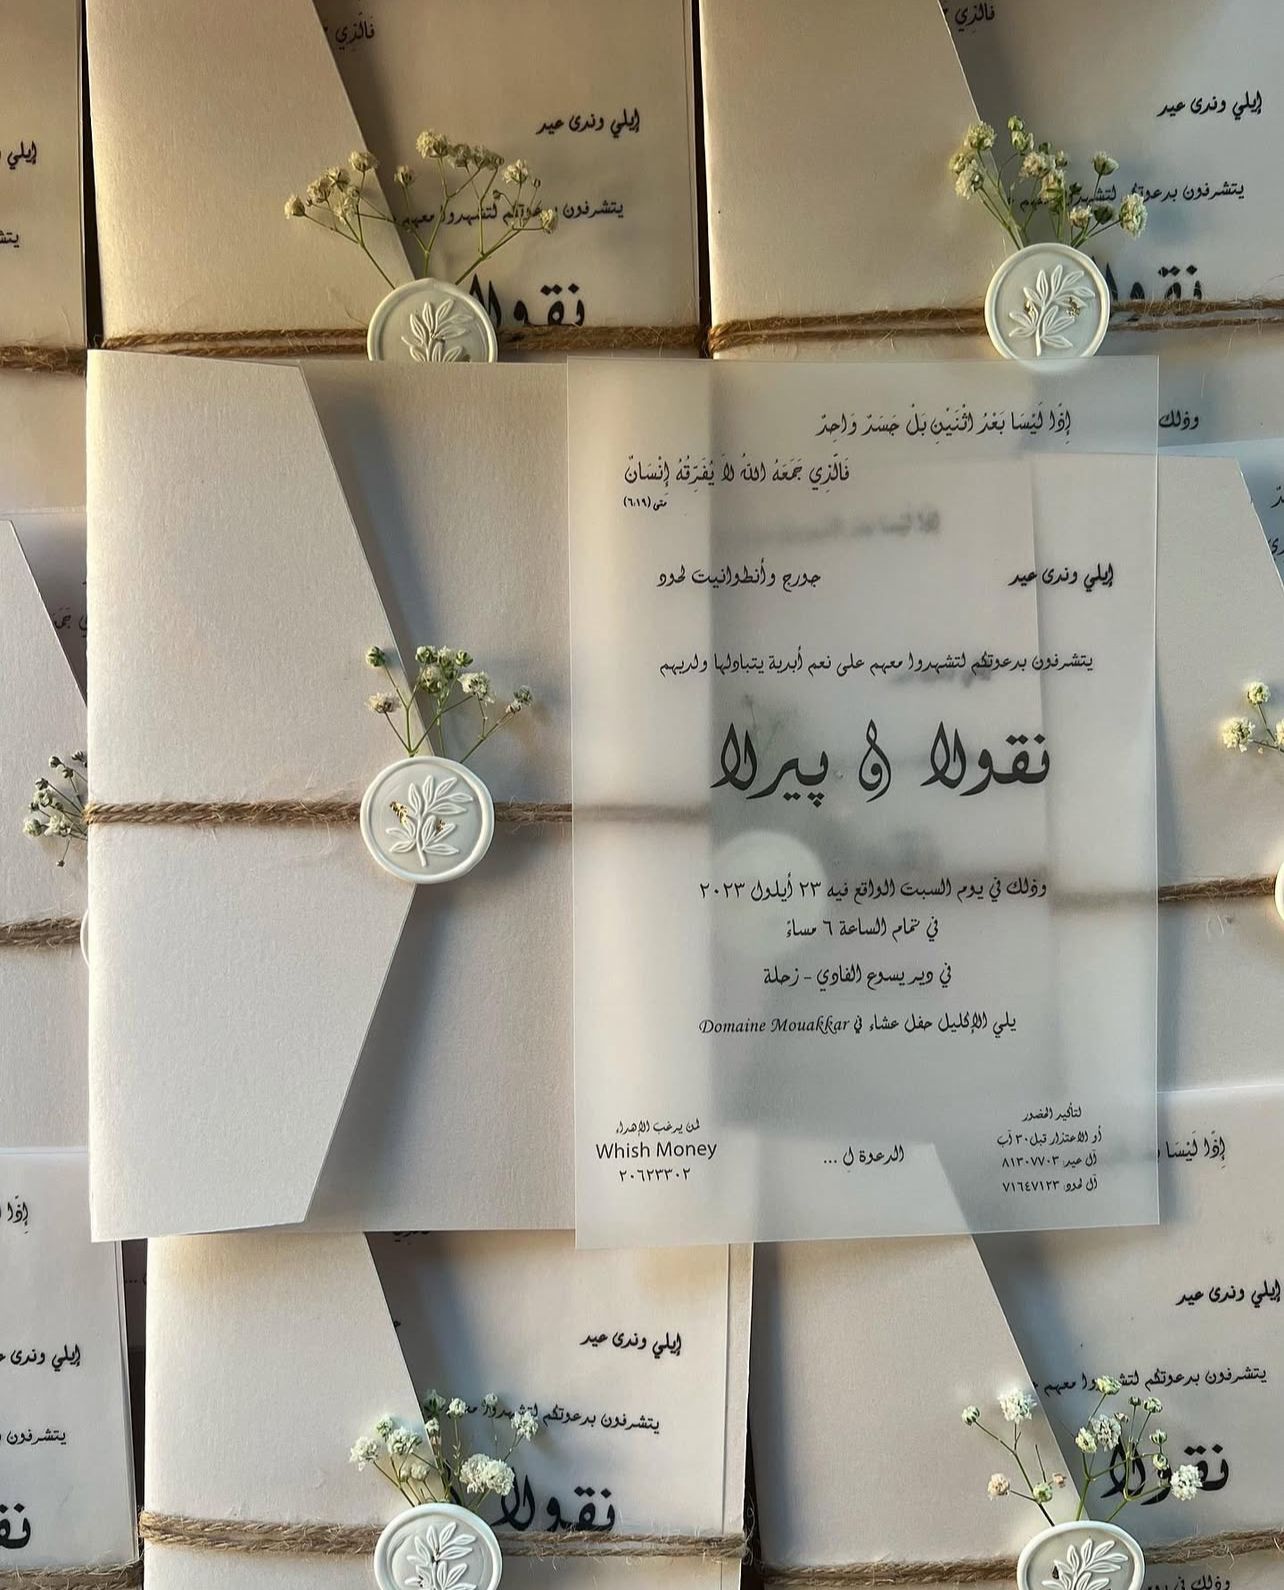 إِذًا لَيْسَا بَعْدُ اثْنَيْنِ بَلْ جَسَدٌ وَاحِدٌ
فَالَّذِي جَمَعَهُ اللهُ لاَ يُفَرِّقُهُ إِنْسَانٌ
متى (٦:١٩)
إيلي وندى عيد
جورج وأنطوانيت لحود
يتشرفون بدعوتكم لتشهدوا معهم على نعم أبدية يتبادلها ولديهم
نقولا و پيرلا
وذلك في يوم السبت الواقع فيه ٢٣ أيلول ٢٠٢٣
في تمام الساعة ٦ مساءً
في دير يسوع الفادي - زحلة
يلي الإكليل حفل عشاء في Domaine Mouakkar
لتأكيد الحضور
أو الاعتذار قبل ٣٠ آب
آل عيد: ٨١٣٠٧٧٠٣
آل لحود: ٧١٦٤٧١٢٣
الدعوة ل ...
لمن يرغب الإهداء
Whish Money
٢٠٦٢٣٣٠٢
فَالَّذِي
إيلي وندى عيد
يتشرفون بدعوتكم لتشهدوا معهم
نقولا
فَالَّذِي
إيلي وندى عيد
يتشرفون بدعوتكم لتشهدوا معهم
نقولا
وذلك
إيلي
إيلي وندى عيد
يتشرفون بدعوتكم لتشهدوا معهم
نقولا
إِذًا لَيْسَا
إيلي وندى عيد
يتشرفون بدعوتكم لتشهدوا معهم
نقولا
وذلك في يوم
إِذًا
إيلي وندى
يتشرفون